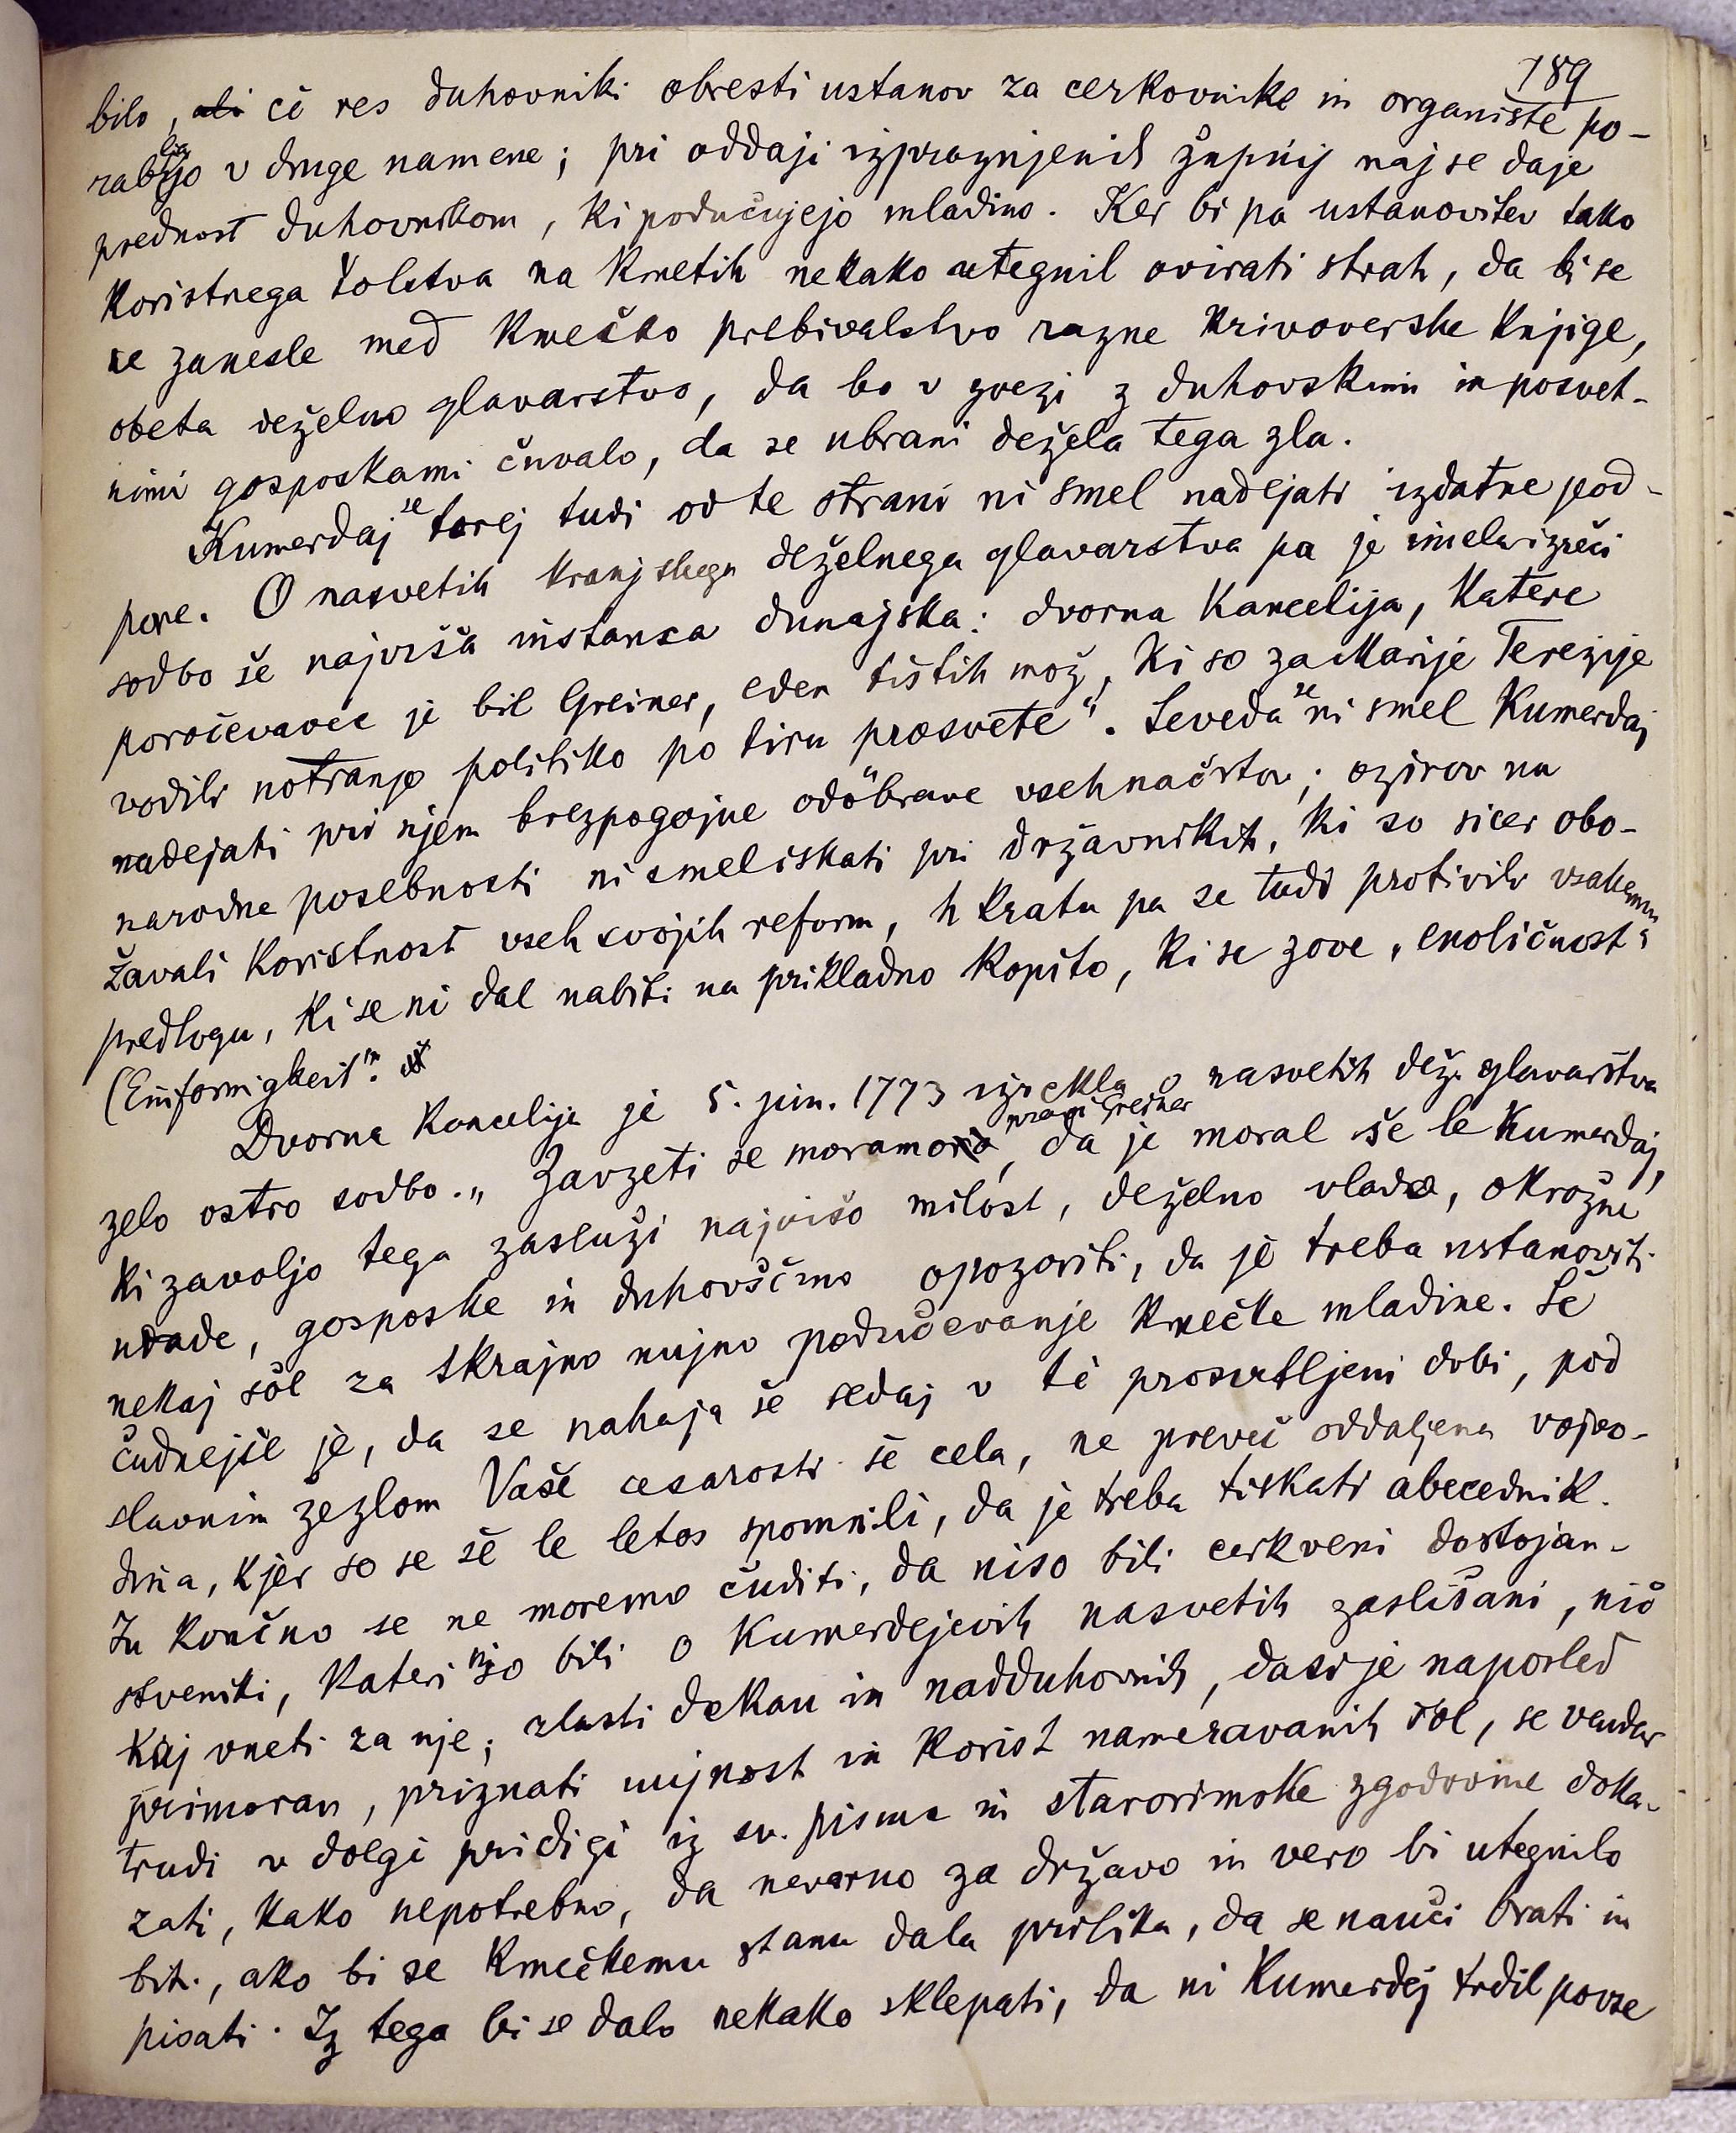 189
bilo, ali če res duhovniki obresti ustanov za cerkovnike in organiste po-
rabljajo v druge namene; pri oddaji izpraznjenih župnij naj se daje
prednost duhovnikom, ki podučujejo mladino. Ker bi pa ustanovitev tako
koristnega šolstva na kmetih nekako utegnil ovirati strah, da bi se
ne zanesle med kmečko prebivalstvo razne krivoverske knjige,
obeta deželno glavarstvo, da bo v zvezi z duhovskimi in posvet-
nimi gosposkami čuvalo, da se ubrani dežela tega zla.
Kumerdaj se torej tudi od te strani ni smel nadejati izdatne pod-
pore. O nasvetih kranjskega deželnega glavarstva pa je imela izreči
sodbo še najvišja instanca dunajska: dvorna kancelija, katere
poročevavec je bil Greiner, eden tistih mož, ki so za Marije Terezije
vodili notranjo politiko po tiru prosvete". Seveda se ni smel Kumerdaj
nadejati pri njem brezpogojne odobrave vseh načrtov; ozirov na
narodne posebnosti ni smel iskati pri državnikih, ki so sicer obo-
žavali koristnost vseh svojih reform, h kratu pa se tudi protivili vsakemu
predlogu, ki se ni dal nabiti na prikladno kopito, ki se zove „enoličnost"
(Einformigkeit".
Dvorna kancelija je 5. jun. 1773 izrekla o nasvetih dež. glavarstva
zelo ostro sodbo. „Zavzeti se moramo, pravi Greiner, da je moral še le Kumerdaj,
ki zavoljo tega zasluži najvišo milost, deželno vlado, okrožne
urade, gosposke in duhovščino opozoriti, da je treba ustanoviti
nekaj šol za skrajno nujno podučevanje kmečke mladine. Še
čudnejše je, da se nahaja še sedaj v tè prosvetljeni dobi, pod
slavnim žezlom Vaše cesarosti še cela, ne preveč oddaljena vojvo-
dina, kjer so se še le letos spomnili, da je treba tiskati abecednik.
In končno se ne moremo čuditi, da niso bili cerkveni dostojan-
stveniki, kateri niso bili o Kumerdejevih nasvetih zaslišani, nič
kaj vneti za nje; zlasti dekan in nadduhovnik, dasi je naposled
primoran, priznati nujnost in korist nameravanih šol, se vendar
trudi v dolgi pridigi iz sv. pisma in starorimske zgodovine doka-
zati, kako nepotrebno, da nevarno za državo in vero bi utegnilo
biti, ako bi se kmečkemu stanu dala prilika, da se nauči brati in
pisati. Iz tega bi se dalo nekako sklepati, da ni Kumerdej trdil povse